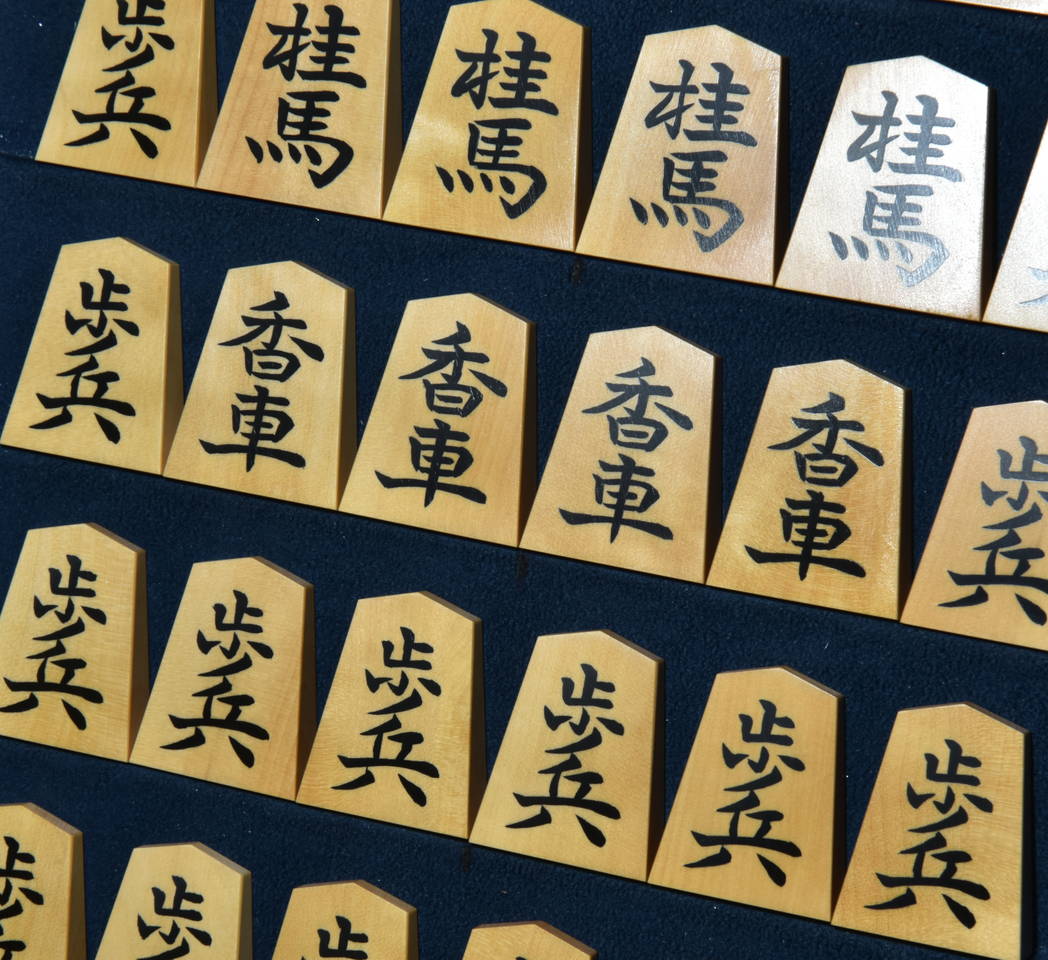 歩兵
桂馬
桂馬
桂馬
桂馬
歩兵
香車
香車
香車
香車
歩兵
歩兵
歩兵
歩兵
歩兵
歩兵
歩兵
歩
歩